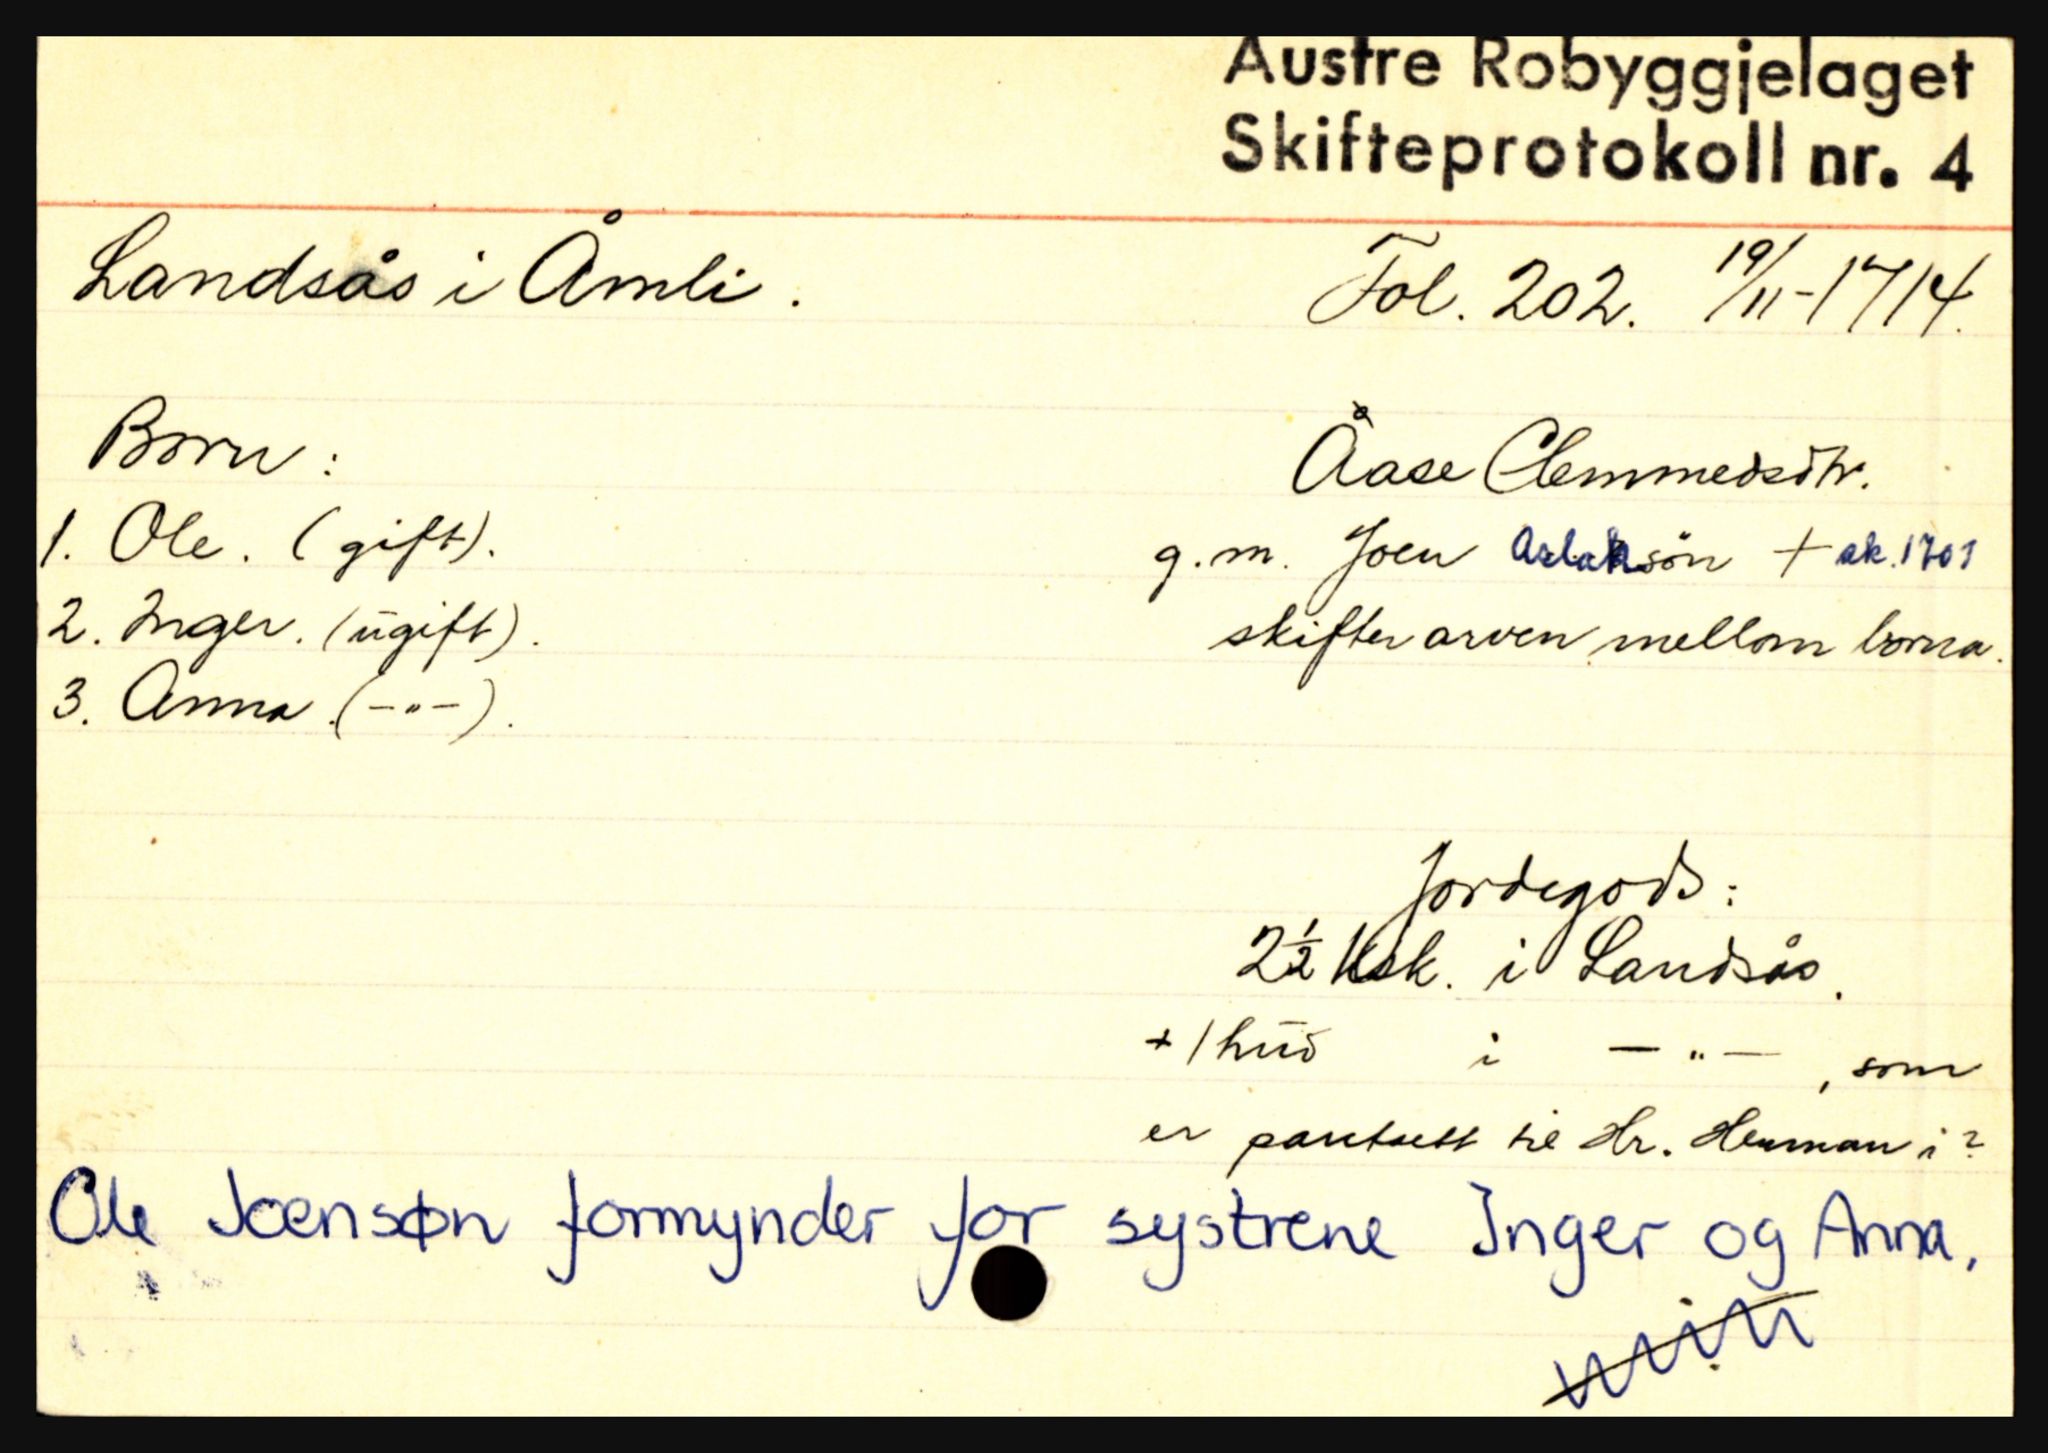 Austre Robyggjelaget
Skifteprotokoll nr. 4
Landsås i Åmli.
Fol. 202. 19/11-1714.
Born:
1. Ole. (gift).
2. Inger. (ugift).
3. Anna. (-"-).
Åase Clemmedsdtr.
g.m. Joen Aslaksön + sk. 1701
skifter arven mellom borna.
Jordegods:
2½ ksk. i Landsås.
+ 1 hud i -"-, som
er pantsett til Hr. Herman i?
Ole Joensøn formynder for systrene Inger og Anna.